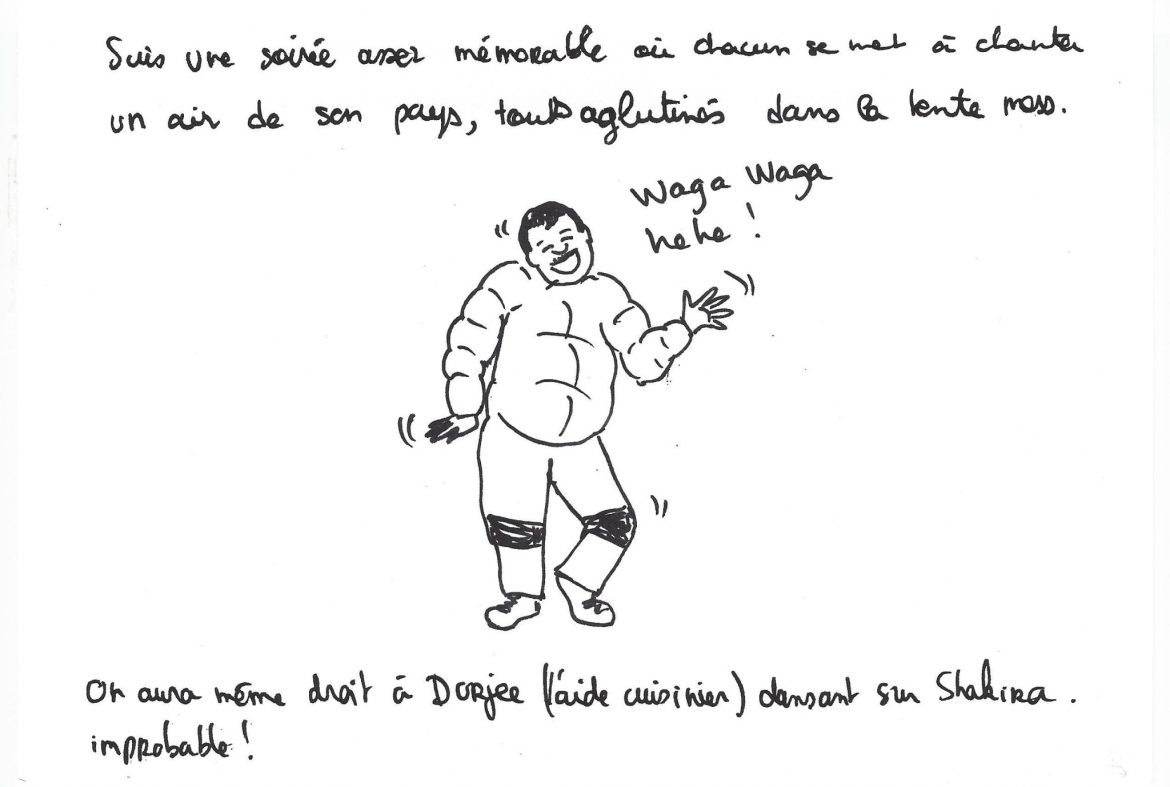 Suis une soirée assez mémorable où chacun se met à chanter
un air de son pays, touts aglutinés dans la tente mess.
Waga Waga
hehe !
On aura même droit à Dorjee (l'aide cuisinier) dansant sur Shakira.
improbable !